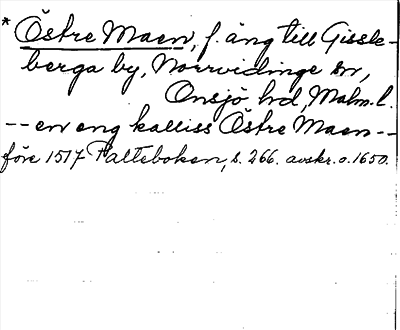 * Östre Maen, f. äng till Gissle-
berga by, Norrvidinge sn,
Onsjö hd, Malm. l.
-- en eng kalliss Östre Maen --
före 1517 Palteboken, s. 266. avskr. o. 1650.